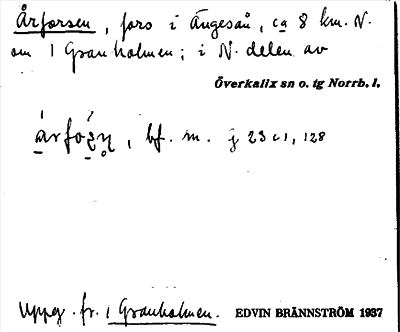 Årforsen, fors i Ängeså, ca 8 km. N.
om 1 Granholmen; i N. delen av
Överkalix sn o. tg Norrb. l.
bf. m. j 23 c 1, 128
Uppg. fr. 1 Granholmen. EDVIN BRÄNNSTRÖM 1937